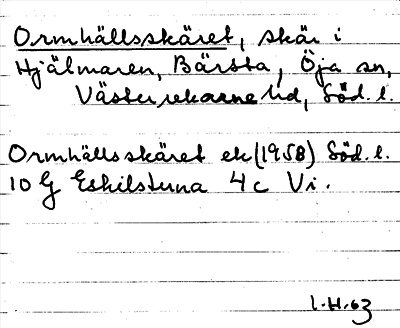 Ormhällsskäret, skär i
Hjälmaren, Bärsta, Öja sn,
Västerrekarne hd, Söd. l.
Ormhällsskäret ek (1958) Söd. l.
10 G Eskilstuna 4 c Vi.
1.H.63